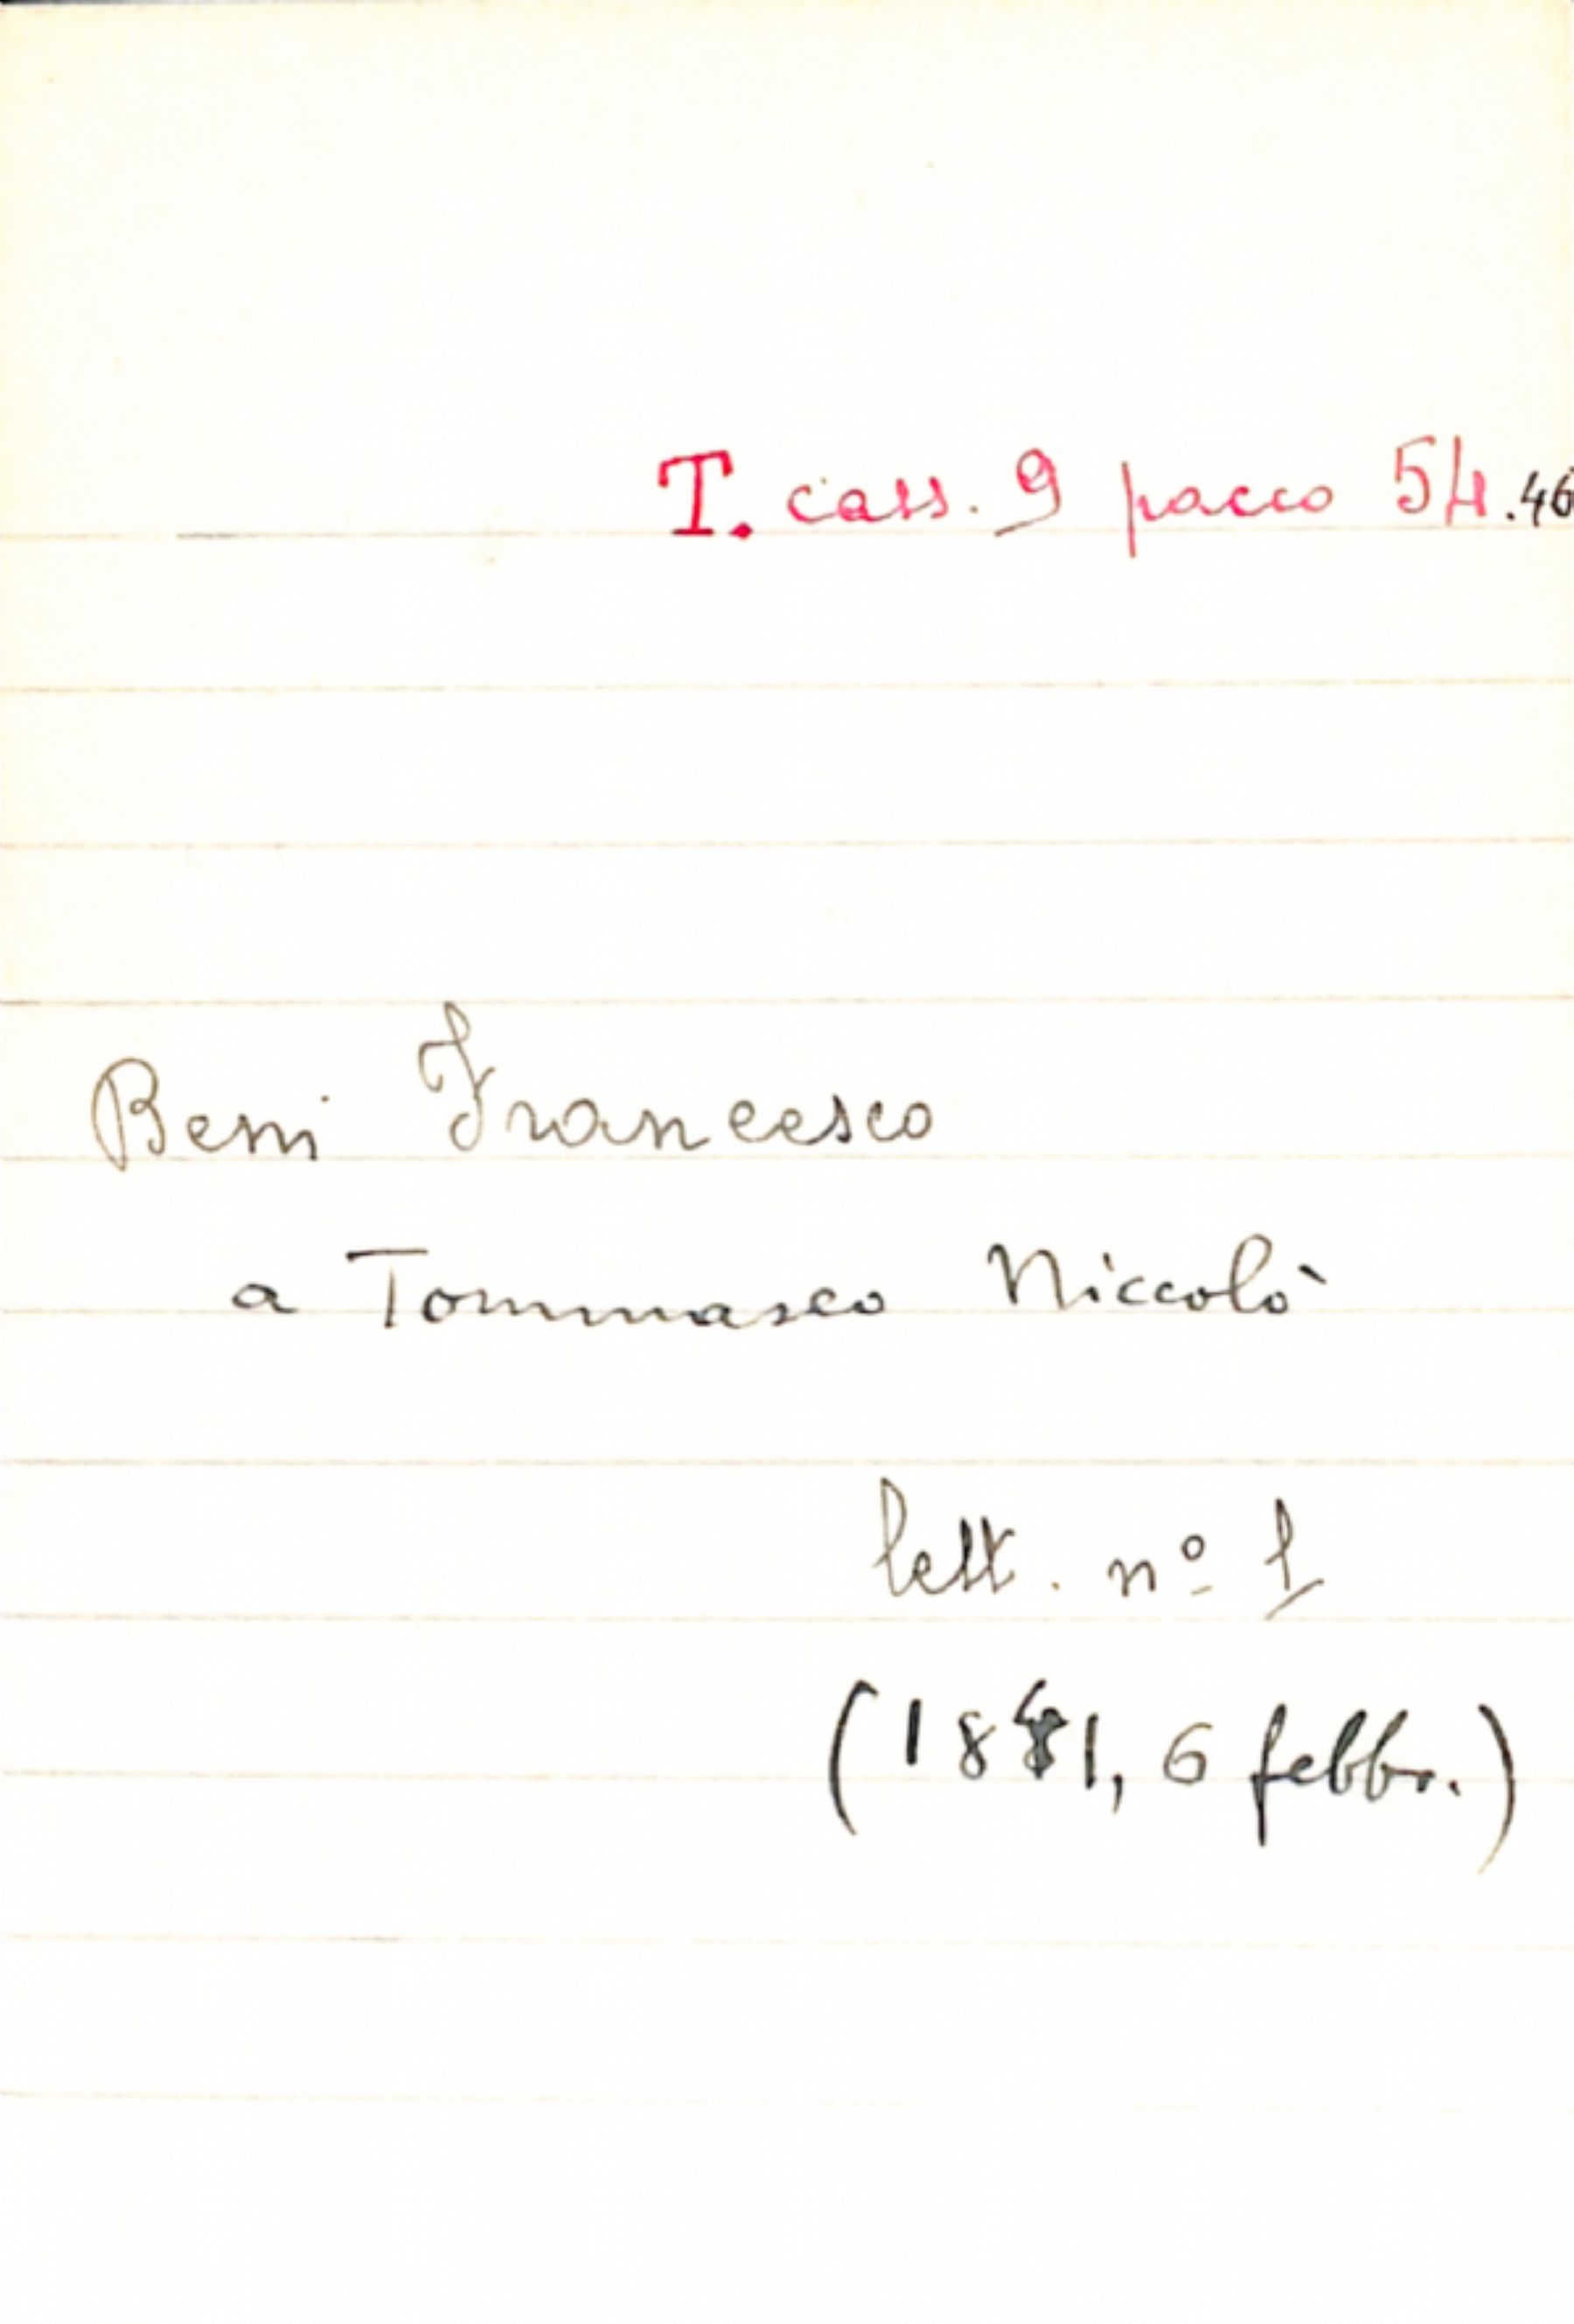 T. cass. 9 pacco 54.46
Beni Francesco
a Tommaseo Niccolò
lett. nº 1
(1841, 6 febbr.)